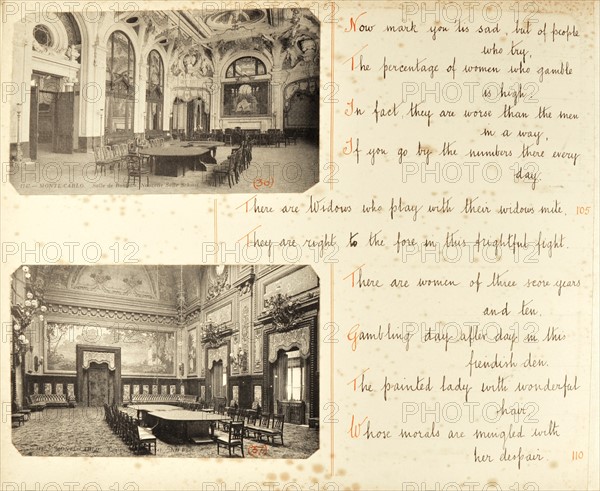 Now mark you 'tis sad, but of people
who try,
The percentage of women who gamble
is high,
In fact, they are worse than the men
in a way,
If you go by the numbers there every
day.
There are Widows who play with their widows mite, 105
They are right to the fore in this frightful fight.
There are women of three score years
and ten,
Gambling day after day in this
fiendish den.
The painted lady with wonderful
hair,
Whose morals are mingled with
her despair. 110
MONTE-CARLO
(30)
PHOTO12